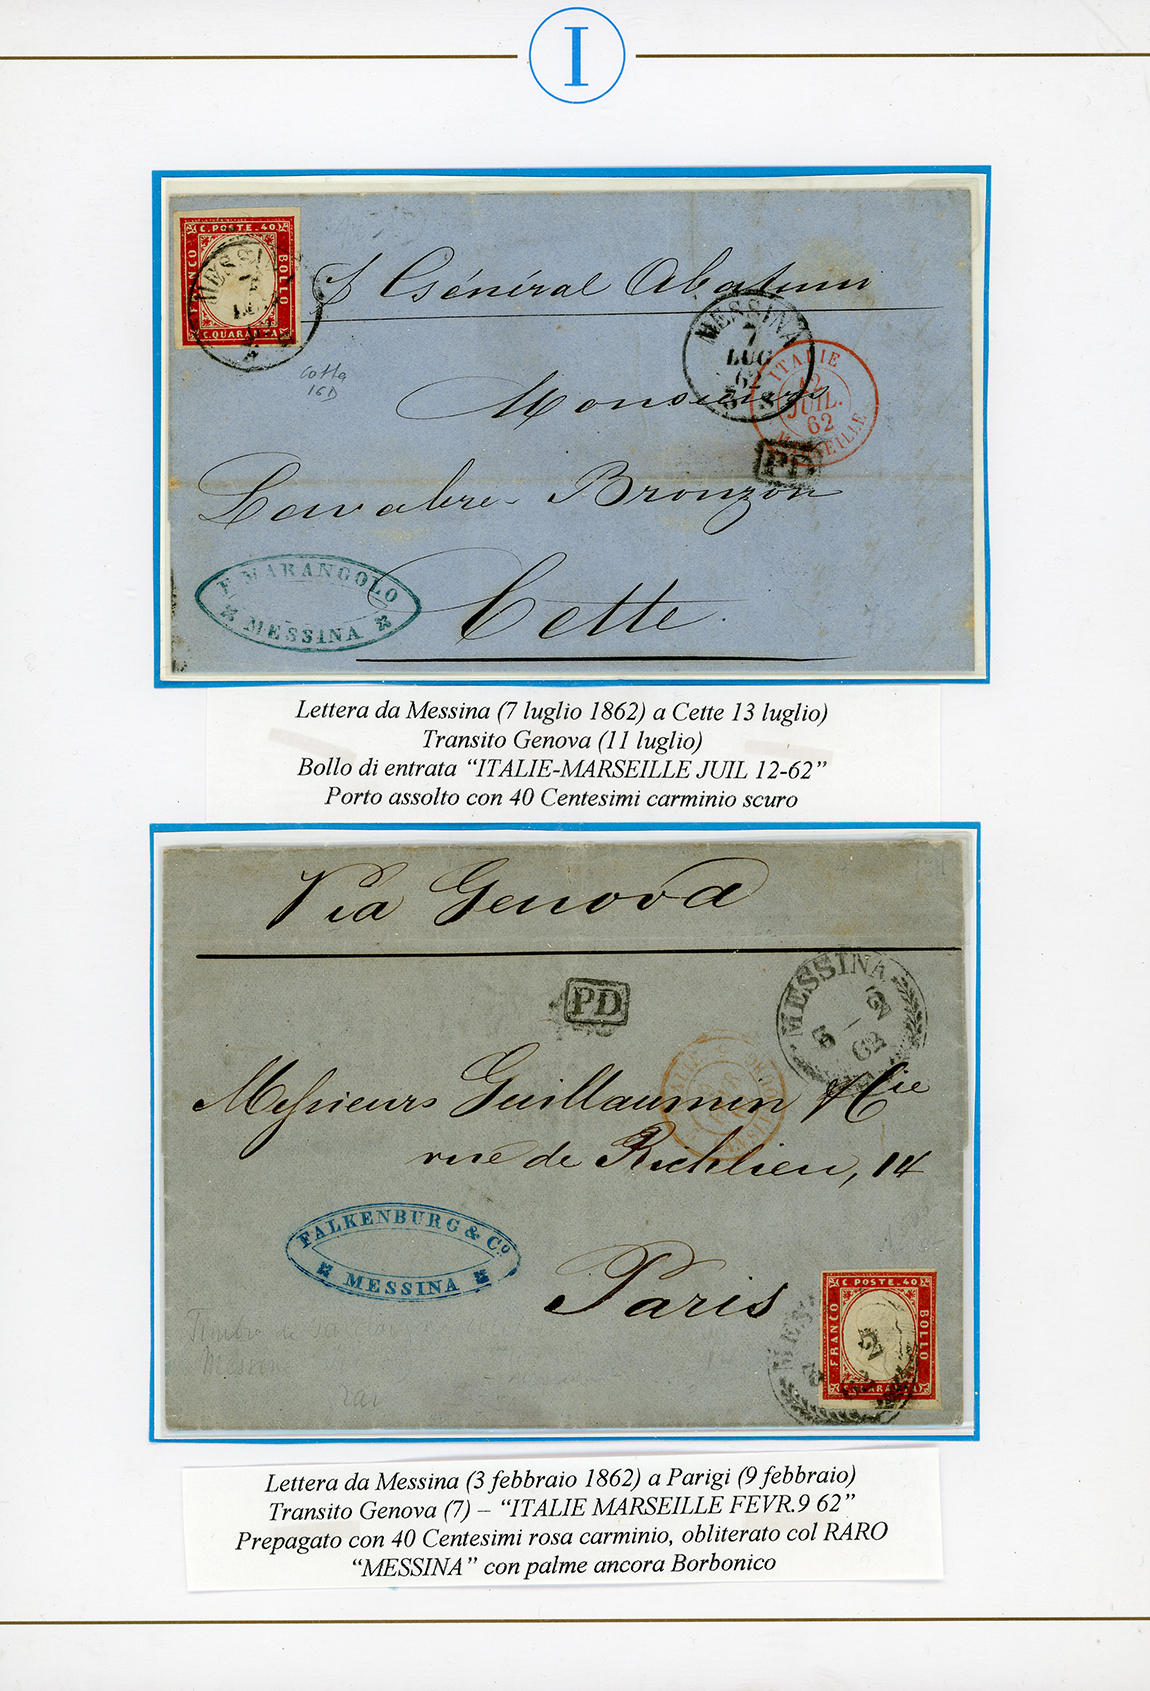 I
C. POSTE. 40
FRANCO
BOLLO
C. QUARANTA
MESSINA
Général Abatucci
MESSINA
7
LUG
62
3 S
ITALIE
12
JUIL.
62
MARSEILLE
PD
cotta
16D
Monsieur
Lavabre Bronzon
F. MARANGOLO
MESSINA
Cette.
Lettera da Messina (7 luglio 1862) a Cette 13 luglio)
Transito Genova (11 luglio)
Bollo di entrata “ITALIE-MARSEILLE JUIL 12-62”
Porto assolto con 40 Centesimi carminio scuro
Via Genova
PD
MESSINA
3 - 2
62
Messieurs Guillaumin & Cie
rue de Richlieu, 14
FALKENBURG & Co
MESSINA
Paris
C. POSTE. 40
FRANCO
BOLLO
C. QUARANTA
MESS
2
Lettera da Messina (3 febbraio 1862) a Parigi (9 febbraio)
Transito Genova (7) – “ITALIE MARSEILLE FEVR.9 62”
Prepagato con 40 Centesimi rosa carminio, obliterato col RARO
“MESSINA” con palme ancora Borbonico